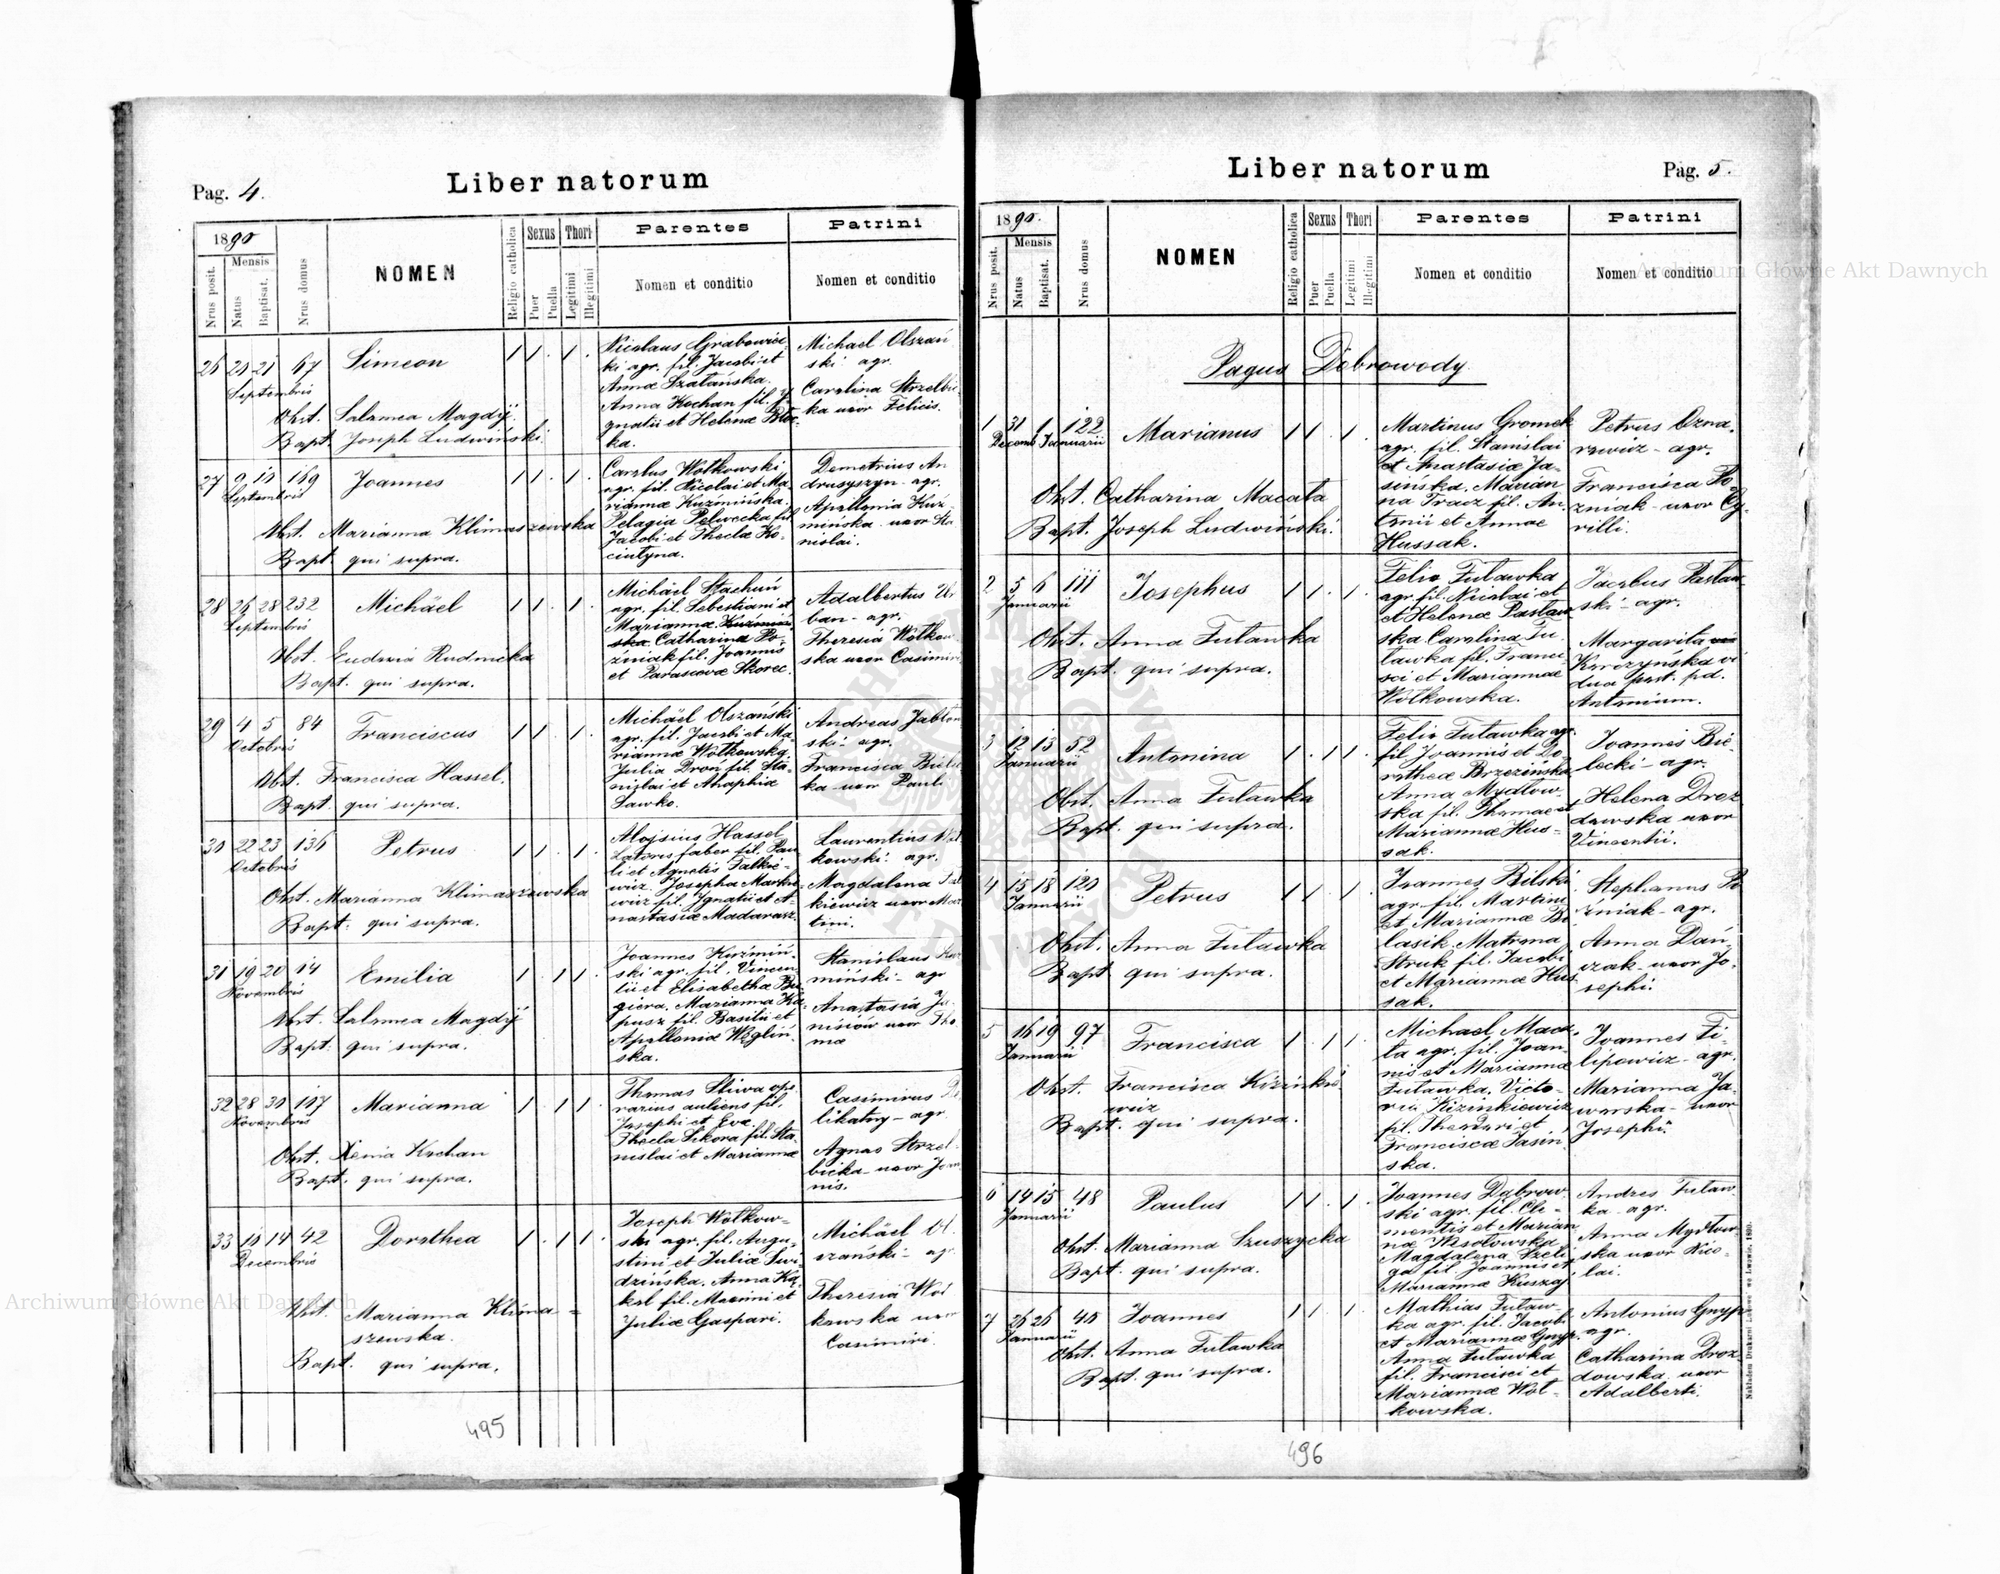 Pag. 4.
Liber natorum
1890
Nrus posit.
Mensis
Natus
Baptisat.
Nrus domus
NOMEN
Religio catholica
Sexus
Puer
Puella
Thori
Legitimi
Illegitimi
Parentes
Nomen et conditio
Patrini
Nomen et conditio
26 20 21 67 Simeon 1 1 . 1 .
Septembris
Obst. Salomea Magdij
Bapt. Joseph Ludwiński
Nicolaus Grabowiec-
ki agr. fil. Jacobi et
Anna Szatańska.
Anna Kochan fil. J-
gnatii et Helena
ka.
Michael Olszań
ski agr.
Carolina Strzelbic-
ka uxor Felicis.
27 9 10 169 Joannes 1 1 . 1 .
Septembris
Obst. Marianna Klimaszewska
Bapt. qui supra.
Carolus Wołkowski
agr. fil. Nicolai et Ma
rianna Kuźmińska.
Pelagia Pelwecka fil
Jacobi et Thecla Ko-
ciutyna.
Demetrius An
drusyszyn - agr.
Apollonia Kuź-
mińska uxor Sta
nislai.
28 26 28 232 Michäel 1 1 . 1 .
Septembris
Obst. Eudoxia Rudnicka
Bapt. qui supra.
Michäel Stachuń
agr. fil. Sebestiani et
Marianna Kuźmiń-
ska Catharina Po-
źniak fil. Joannis
et Parascevæ Skorec.
Adalbertus Ur
ban - agr.
Theresia Wołkow
ska uxor Casimiri
29 4 5 84 Franciscus 1 1 . 1 .
Octobris
Obst. Francisca Hassel.
Bapt. qui supra.
Michäel Olszański
agr. fil. Jacobi et Ma-
rianna Wołkowska.
Julia Droń fil. Sta-
nislai et Ahaphia
Sawko.
Andreas Jabłoń
ski - agr.
Francisca Biele
ka - uxor Pauli
30 22 23 136 Petrus 1 1 . 1 .
Octobris
Obst. Marianna Klimaszewska
Bapt. qui supra.
Alojsius Hassel
faber fil. Pau
li et Agnetis Falkie-
wicz. Josepha Markie-
wicz fil. Ignatii et A-
nastasiæ Madarasz.
Laurentius Woł
kowski agr.
Magdalena
kiewicz uxor Mar
tini.
31 19 20 14 Emilia 1 . 1 1 .
Novembris
Obst. Salomea Magdij
Bapt. qui supra.
Joannes Kuźmiń-
ski agr. fil. Vincen
tii et Elisabetha Bu
giera. Marianna Ka
pusz fil. Basilii et
Apolloniæ Węgliń-
ska.
Stanislaus Kuź
miński - agr
Anastasia Ja-
nisiów uxor Tho
mæ
32 28 30 107 Marianna 1 . 1 1 .
Novembris
Obst. Xenia Kochan
Bapt. qui supra.
Thomas Śliwa ope
rarius auliens fil.
Josephi et Eva.
Thecla Sikora fil. Sta
nislai et Marianna
Casimirus
likatny - agr.
Agnes Strzel
bicka - uxor Joan
nis.
33 10 14 42 Dorothea 1 . 1 1 .
Decembris
Obst. Marianna Klima-
szewska.
Bapt. qui supra.
Joseph Wołkow-
ski agr. fil. Augu-
stini et Julia Świ-
dzińska. Anna Ka-
kol fil. Maximi et
Juliæ Gaspari.
Michäel Ol-
szański - agr.
Theresia Woł
kowska uxor
Casimiri.
495
Liber natorum
Pag. 5.
1890.
Nrus posit.
Mensis
Natus
Baptisat.
Nrus domus
NOMEN
Religio catholica
Sexus
Puer
Puella
Thori
Legitimi
Illegitimi
Parentes
Nomen et conditio
Patrini
Nomen et conditio
Pagus Dobrowody
1 31 1 122 Marianus 1 1 . 1 .
Decemb Januarii
Obst. Catharina Macała
Bapt. Joseph Ludwiński.
Martinus Gromek
agr. fil. Stanislai
et Anastasiæ Ja-
sińska. Marian
na Tracz fil. An
tonii et Annae
Hussak.
Petrus Ozna-
rowicz - agr.
Francisca Po
źniak - uxor Cy-
rilli.
2 5 6 111 Josephus 1 1 . 1 .
Januarii
Obst. Anna Futawka
Bapt. qui supra.
Felix Futawka
agr. fil. Nicolai et
et Helenæ Pasław
ska. Carolina Fu-
tawka fil. Franci-
sci et Mariannae
Wołkowska.
Jacobus Pasław-
ski - agr.
Margarita
Korczyńska vi
dua post. pd.
Antonium.
3 12 13 52 Antonina 1 . 1 1 .
Januarii
Obst. Anna Futawka
Bapt. qui supra.
Felix Futawka agr.
fil. Joannis et Do-
rothea Brzezińska
Anna Mydłow-
ska fil. Thomae et
Mariannæ Hus-
sak.
Joannes Bie-
lecki - agr.
Helena Droz
dowska uxor
Vincentii.
4 15 18 120 Petrus 1 1 . 1 .
Januarii
Obst. Anna Futawka
Bapt qui supra.
Joannes Bilski
agr. fil. Martini
et Mariannæ Bi
lasik. Matrona
Struk fil. Jacobi
et Mariannæ Hus
sak.
Stephanus Po
źniak - agr.
Anna Dań-
czak - uxor Jo-
sephi.
5 16 19 97 Francisca 1 . 1 1 .
Januarii
Obst. Francisca Kizinkie
wicz
Bapt. qui supra.
Michael Maca-
ła agr. fil. Joan-
nis et Mariannæ
Futawka. Victo-
ria Kizinkiewicz
fil. Theodori et
Franciscæ Jasiń-
ska.
Joannes Fi-
lipowicz - agr.
Marianna Ja-
worska - uxor
Josephi.
6 14 15 48 Paulus 1 1 . 1 .
Januarii
Obst. Marianna Szuszycka
Bapt. qui supra.
Joannes Dąbrow-
ski agr. fil. Cle-
mentis et Marian
næ Wsołowska
Magdalena Szeli
ga fil. Joannis et
Mariannæ Kuszaj
Andreas Futaw
ka agr.
Anna Mydłow-
ska uxor Nico-
lai.
7 26 26 40 Joannes 1 1 . 1 .
Januarii
Obst. Anna Futawka
Bapt. qui supra.
Mathias Futaw-
ka agr. fil. Jacobi
et Mariannæ Gnyp.
Anna Futawka
fil. Francisci et
Mariannæ Woł-
kowska.
Antonius Gnyp
agr.
Catharina Droz
dowska uxor
Adalberti.
Nakładem Drukarni Ludowej we Lwowie. 1890.
496
Archiwum Główne Akt Dawnych
Archiwum Główne Akt Dawnych